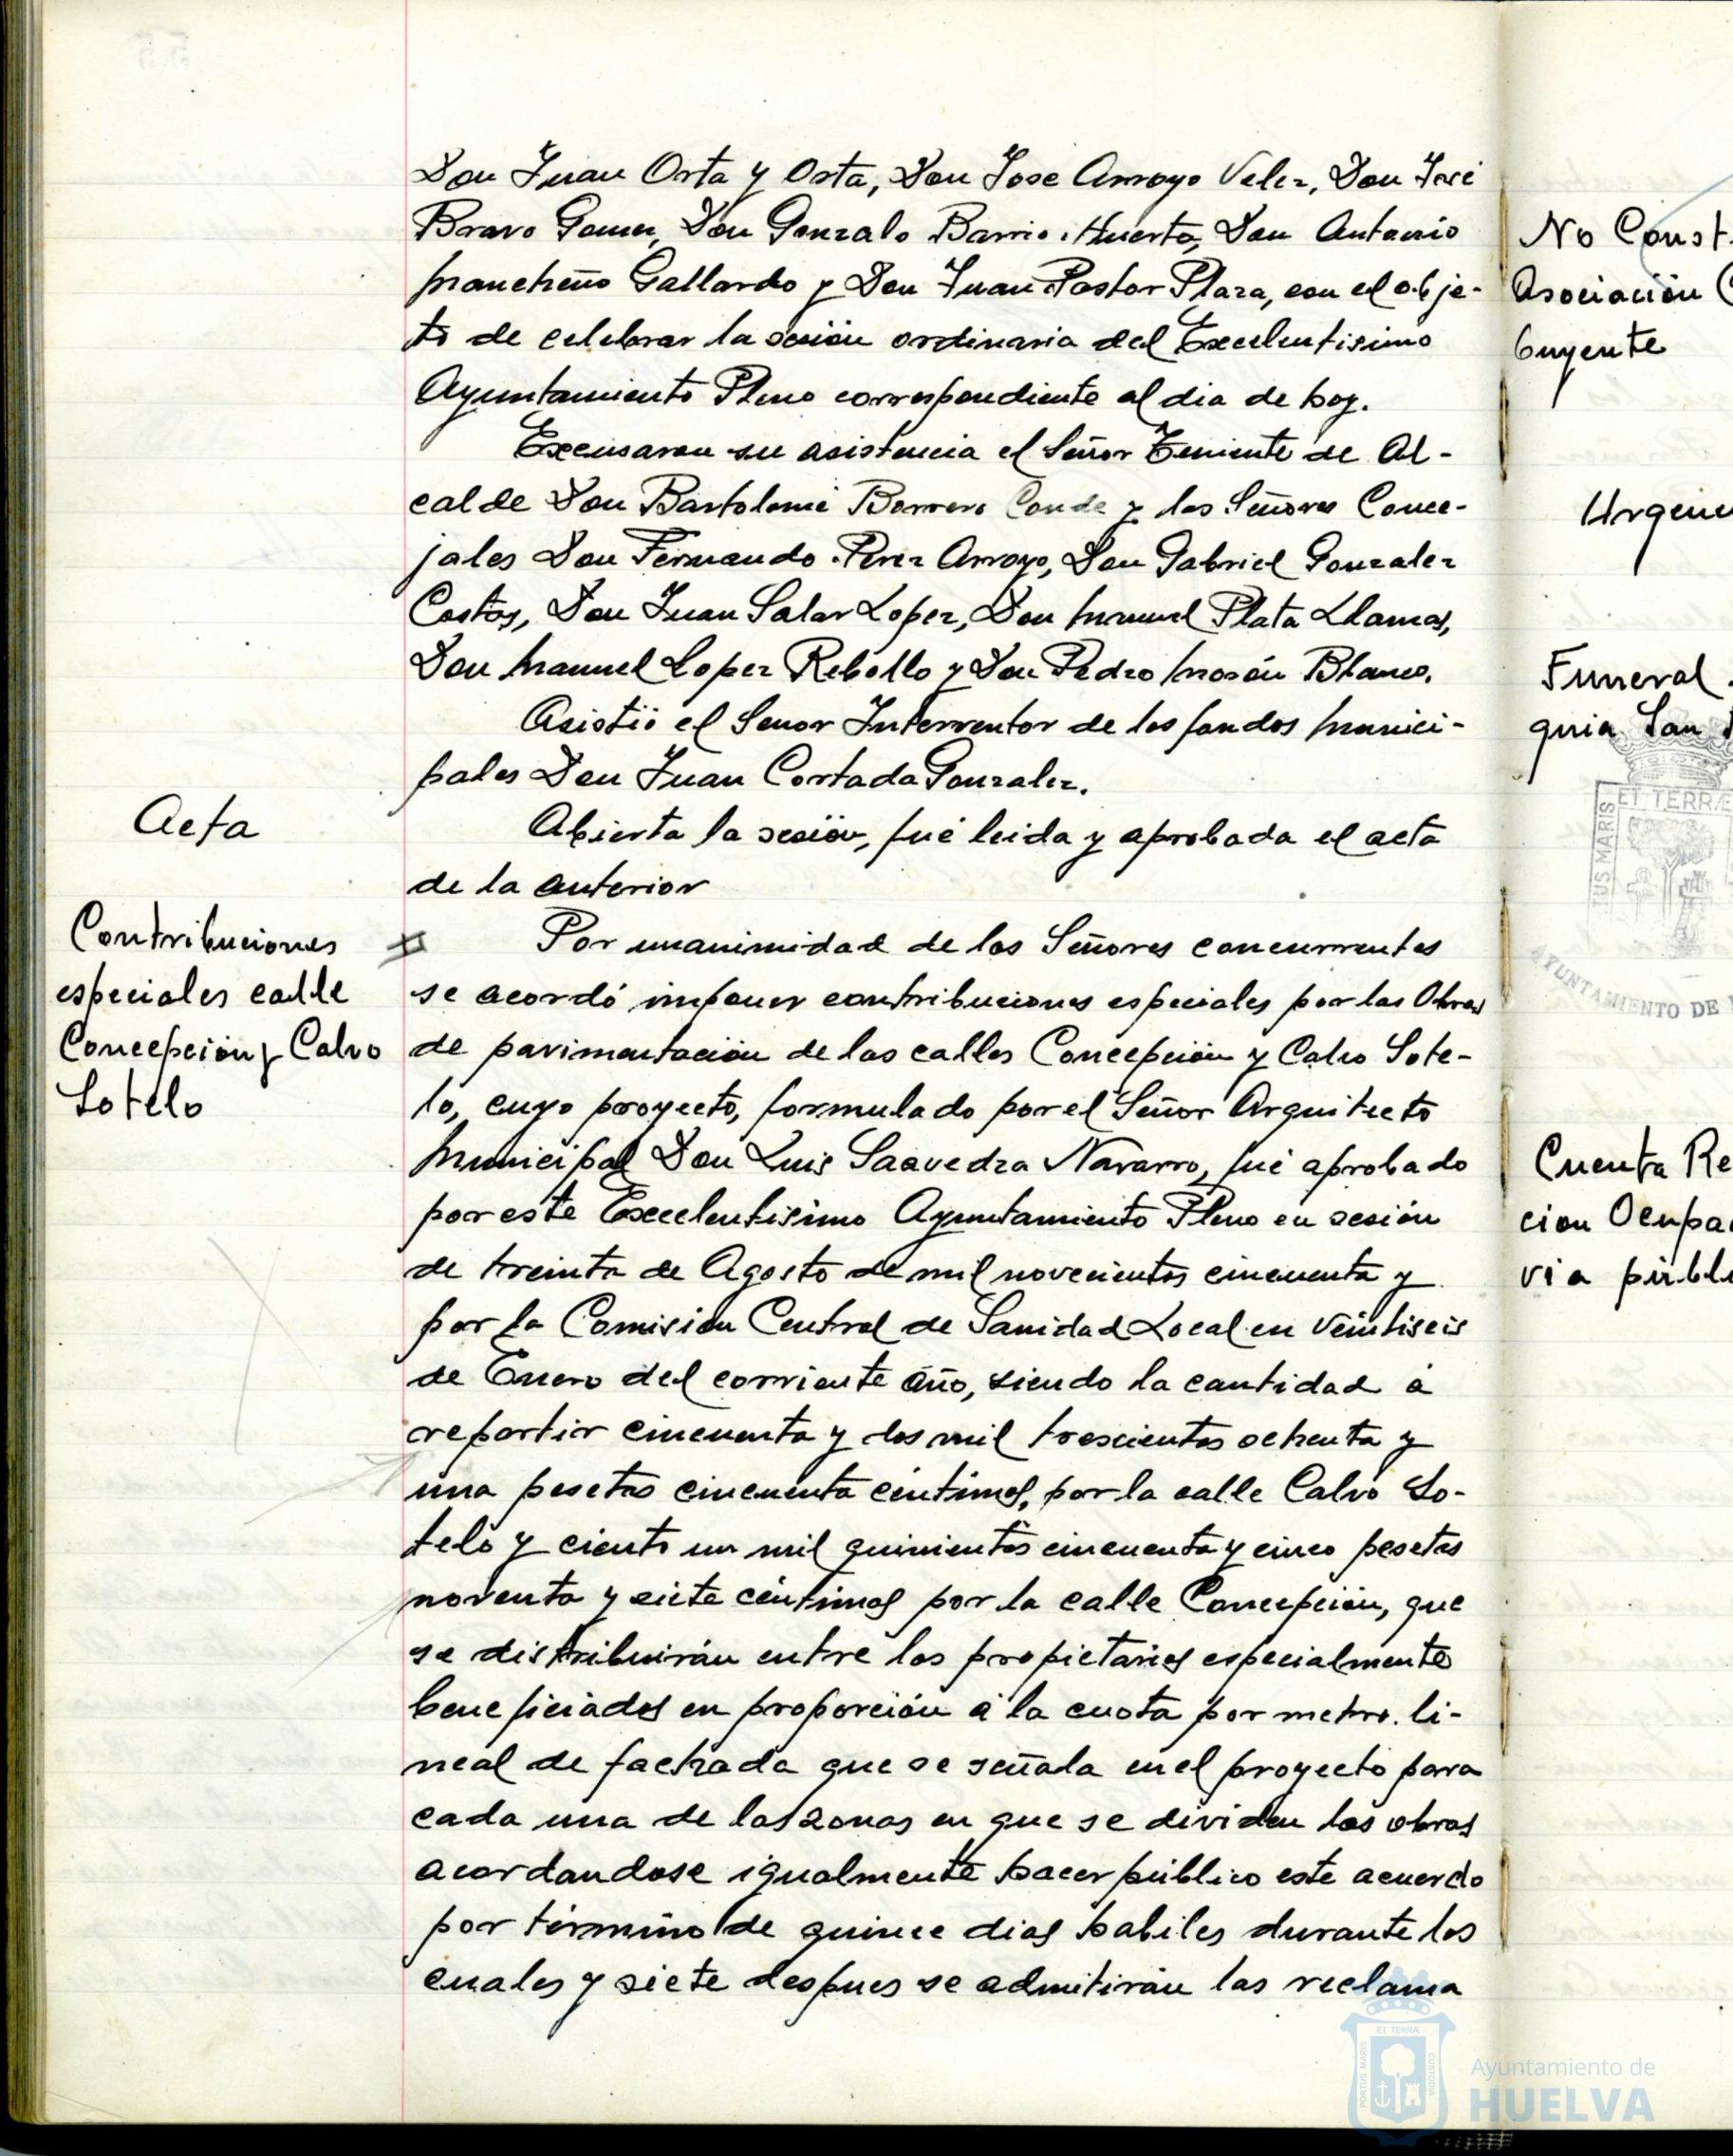 Don Juan Orta y Orta, Don Jose Arroyo Velez, Don José
Bravo Gomez, Don Gonzalo Barrio Huerta, Don Antonio
Mancheño Gallardo y Don Juan Pastor Plaza, con el obje-
to de celebrar la sesión ordinaria del Excelentisimo
Ayuntamiento Pleno correspondiente al dia de hoy.
Excusaron su asistencia el Señor Teniente de Al-
calde Don Bartolomé Borrero Conde y los Señores Conce-
jales Don Fernando Perez Arroyo, Don Gabriel Gonzalez
Costas, Don Juan Salas Lopez, Don Manuel Plata Llamas,
Don Manuel Lopez Rebollo y Don Pedro Morón Blanco.
Asistió el Senor Interventor de los fondos Munici-
pales Don Juan Cortada Gonzalez.
Acta
Abierta la sesión, fué leida y aprobada el acta
de la anterior
Contribuciones
especiales calle
Concepción y Calvo
Sotelo
Por unanimidad de los Señores concurrentes
se acordó imponer contribuciones especiales por las Obras
de pavimentación de las calles Concepción y Calvo Sote-
lo, cuyo proyecto, formulado por el Señor Arquitecto
Municipal Don Luis Saavedra Navarro, fué aprobado
por este Excelentisimo Ayuntamiento Pleno en sesión
de treinta de Agosto de mil novecientos cincuenta y
por la Comisión Central de Sanidad Local en veintiseis
de Enero del corriente año, siendo la cantidad á
repartir cincuenta y dos mil trescientas ochenta y
una pesetas cincuenta céntimos, por la calle Calvo So-
telo y ciento un mil quinientos cincuenta y cinco pesetas
noventa y siete céntimos por la calle Concepción, que
se distribuirán entre los propietarios especialmente
beneficiados en proporción á la cuota por metro li-
neal de fachada que se señala en el proyecto para
cada una de las zonas en que se dividen las obras
acordandose igualmente hacer público este acuerdo
por término de quince dias habiles durante los
cuales y siete despues se admitirán las reclama
No Const.
Asociación C
buyente
Urgenc
Funeral
quia San
ET TERRÆ
US MARIS
AYUNTAMIENTO DE
Cuenta Re
cion Ocupac
via públi
PORTUS MARIS
ET TERRÆ
CUSTODIA
Ayuntamiento de
HUELVA